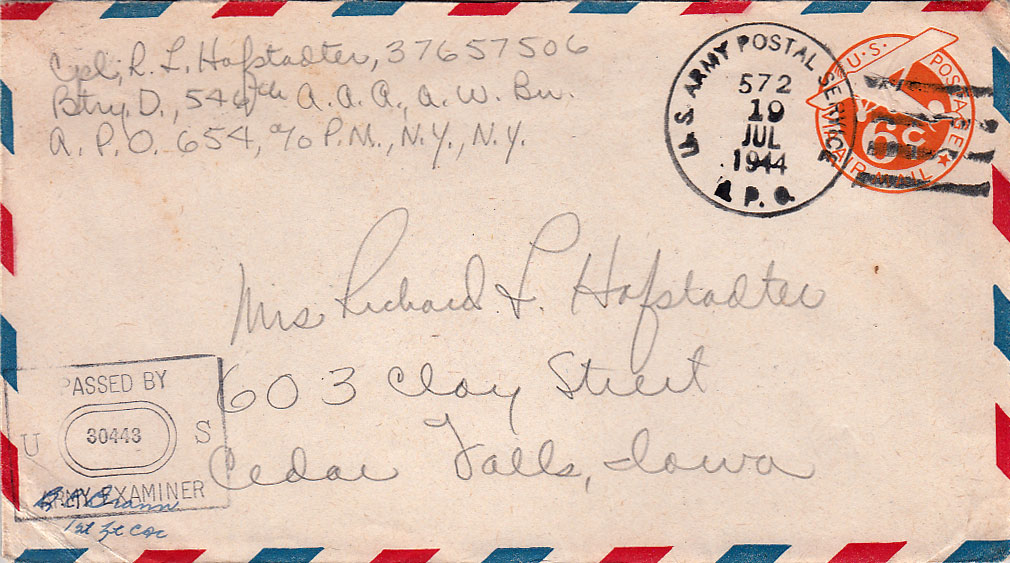 Cpl. R. L. Hofstadter, 37657506
Btry. D., 546th A.A.A., A.W. Bn.
A.P.O. 654, c/o P.M., N.Y., N.Y.
U.S. ARMY POSTAL SERVICE
572
19
JUL
1944
A.P.O.
U.S. POSTAGE
6c
VIA AIR MAIL
Mrs Richard L. Hofstadter
603 Clay Street
Cedar Falls, Iowa
PASSED BY
U 30443 S
ARMY EXAMINER
1st Lt CAC